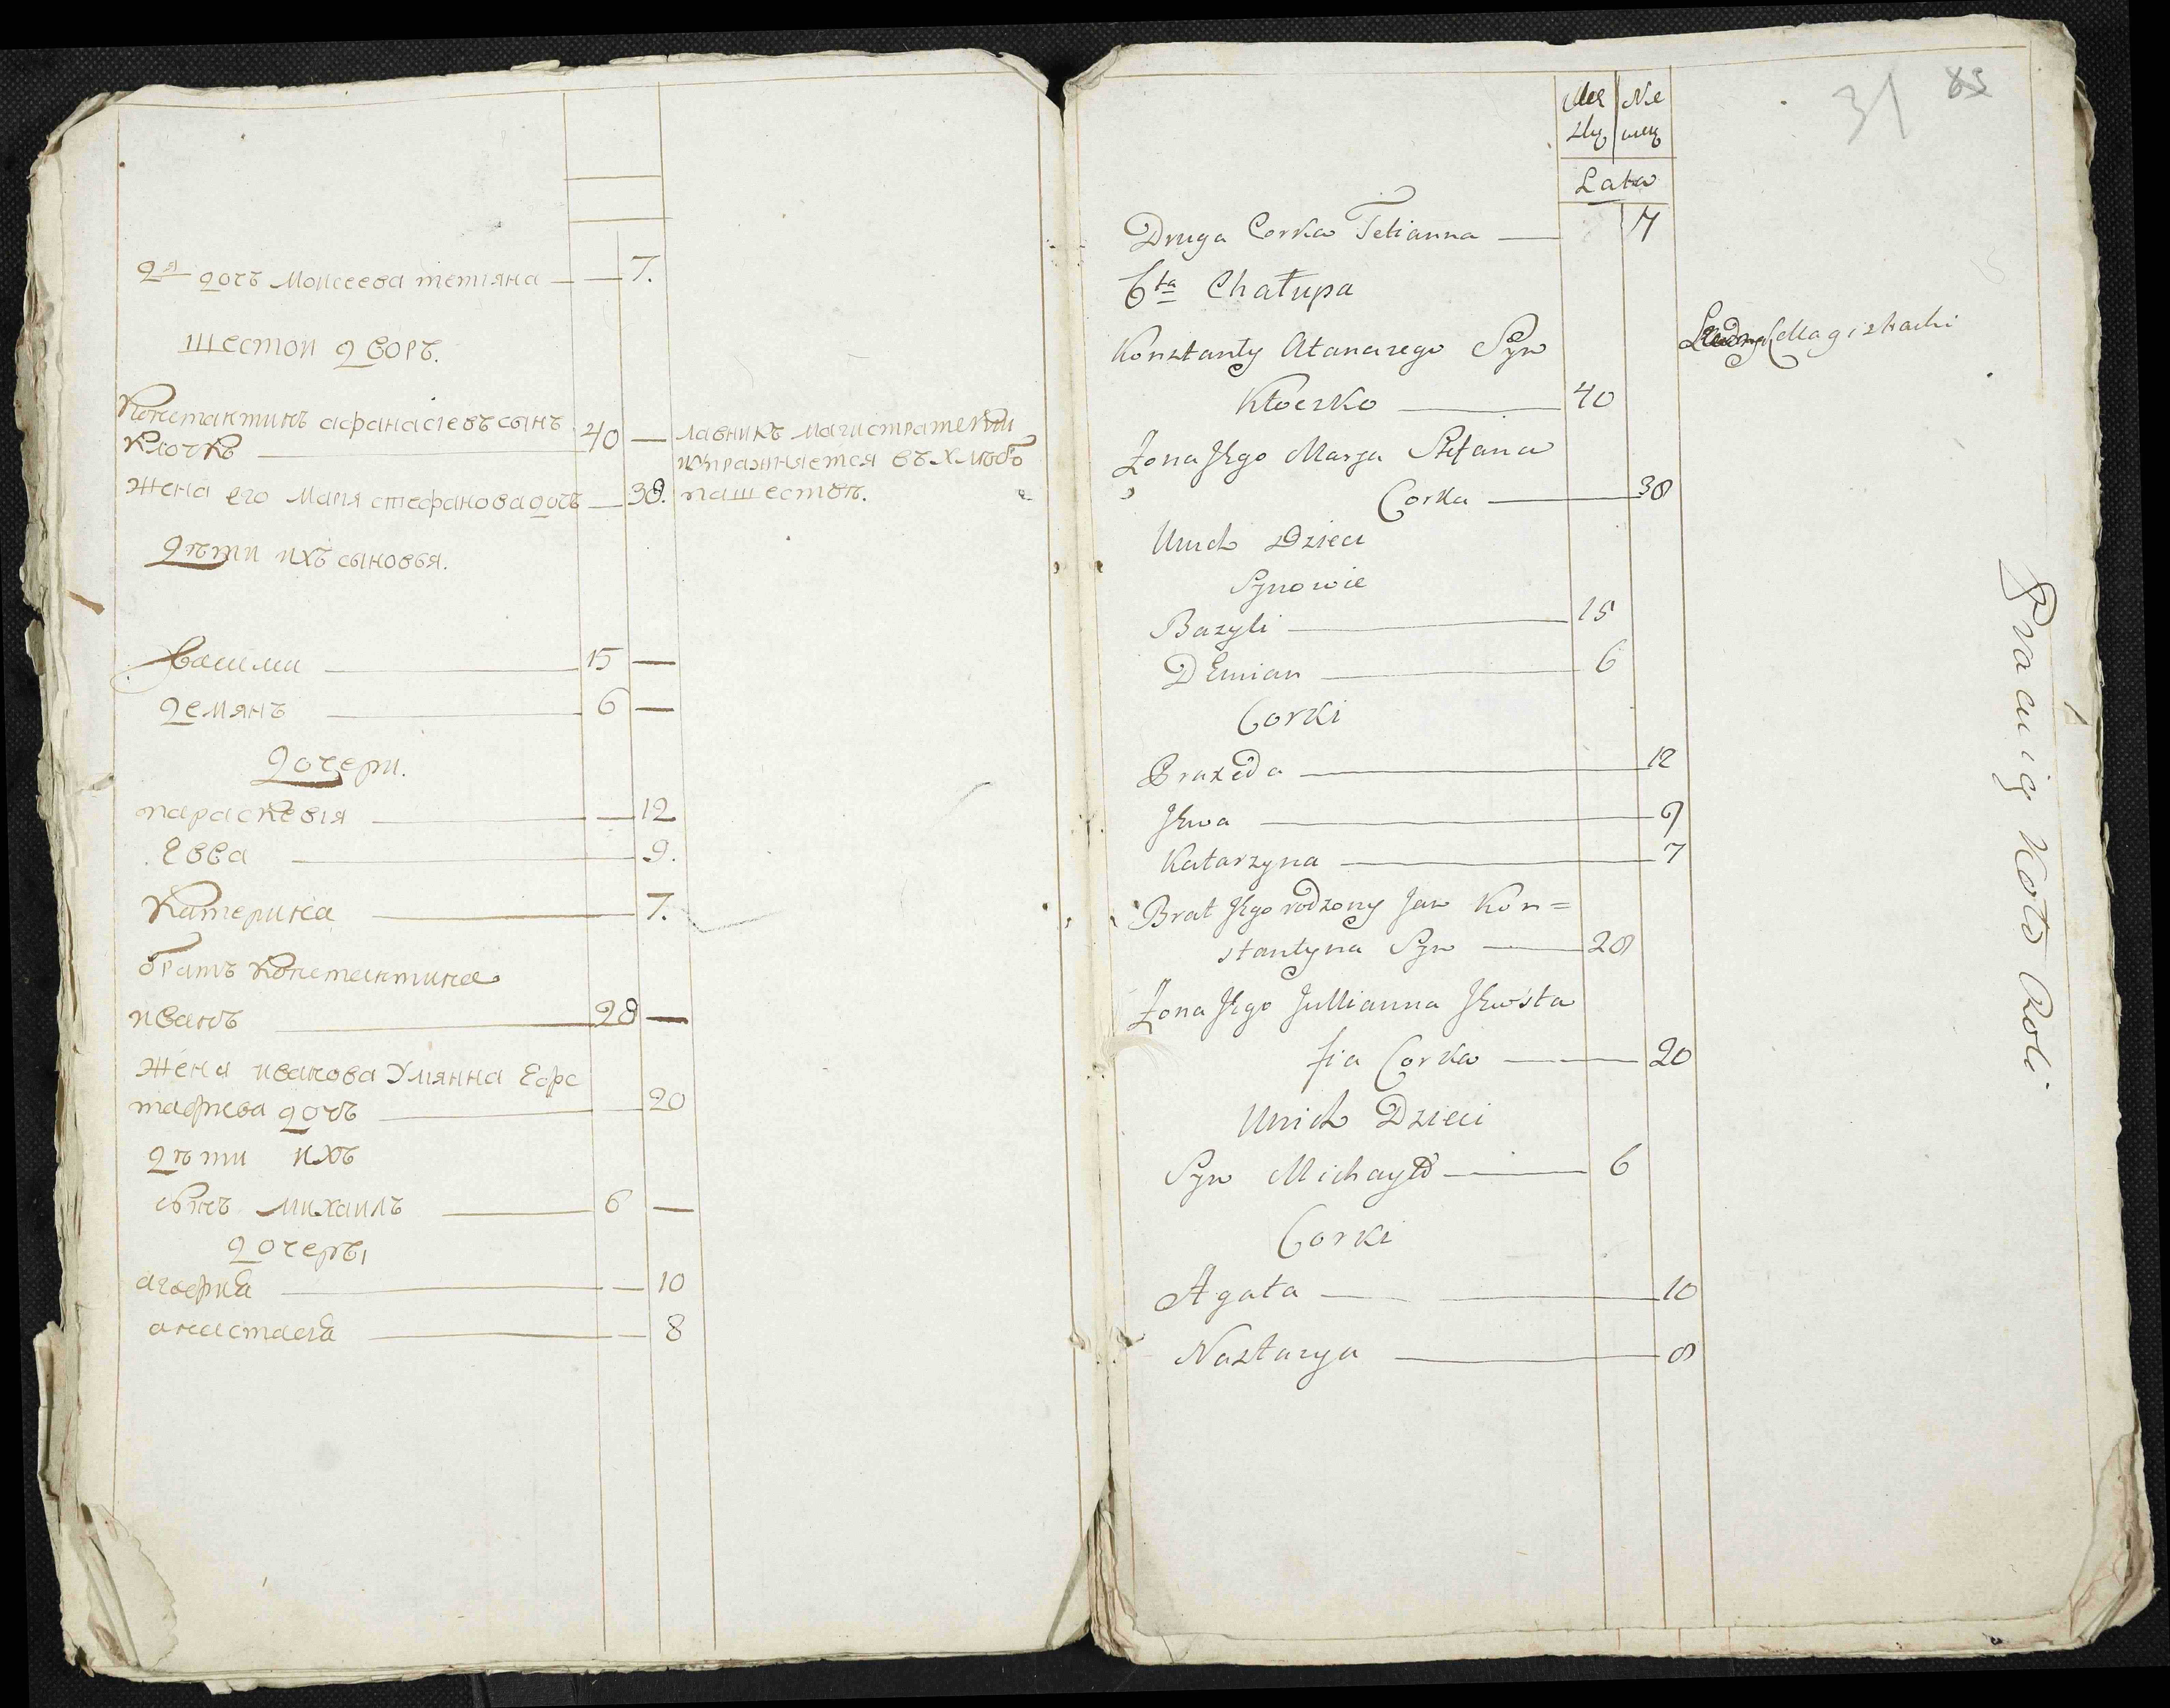 2я дочъ Моисеева тетіяна — — 7.
шестои дворъ.
Констактинъ афанасіевъ сынъ
Ключко — 40 —
лавникъ магистратскии
упражняется въ хлѣбо
пашествѣ.
жена его Маря стефановадочъ — 38.
Дѣти ихъ сыновья.
Василии — 15 —
демянъ — 6 —
Дочери.
параскевія — — 12
Евва — 9.
Катерина — 7.
братъ Констентина
иванъ — 28 —
жена иванова Улянна Евс
тафиева дочъ — — 20
дѣти ихъ
сынъ михаилъ — 6 —
дочеры
агафиа — — 10
анастасиа — — 8
31 85
Męz Nie
zky wiey
Lata
Druga Corka Tetianna — 7
6ta Chałupa
Konstanty Atanazego Syn
Kłoczko — 40
Magistracki
Zona Jego Marya Stefana
Corka — 38
Unich Dzieci
Synowie
Bazyli — 15
DEmian — 6
Corki
Praxeda — 12
Jewa — 9
Katarzyna — 7
Brat Jego rodzony Jan Kon=
stantyna Syn — 28
Zona Jego Jullianna Jewsta
fia Corka — 20
Unich Dzieci
Syn Michayło — 6
Corki
Agata — 10
Nastazya — 8
Pracuią Koło Roli.